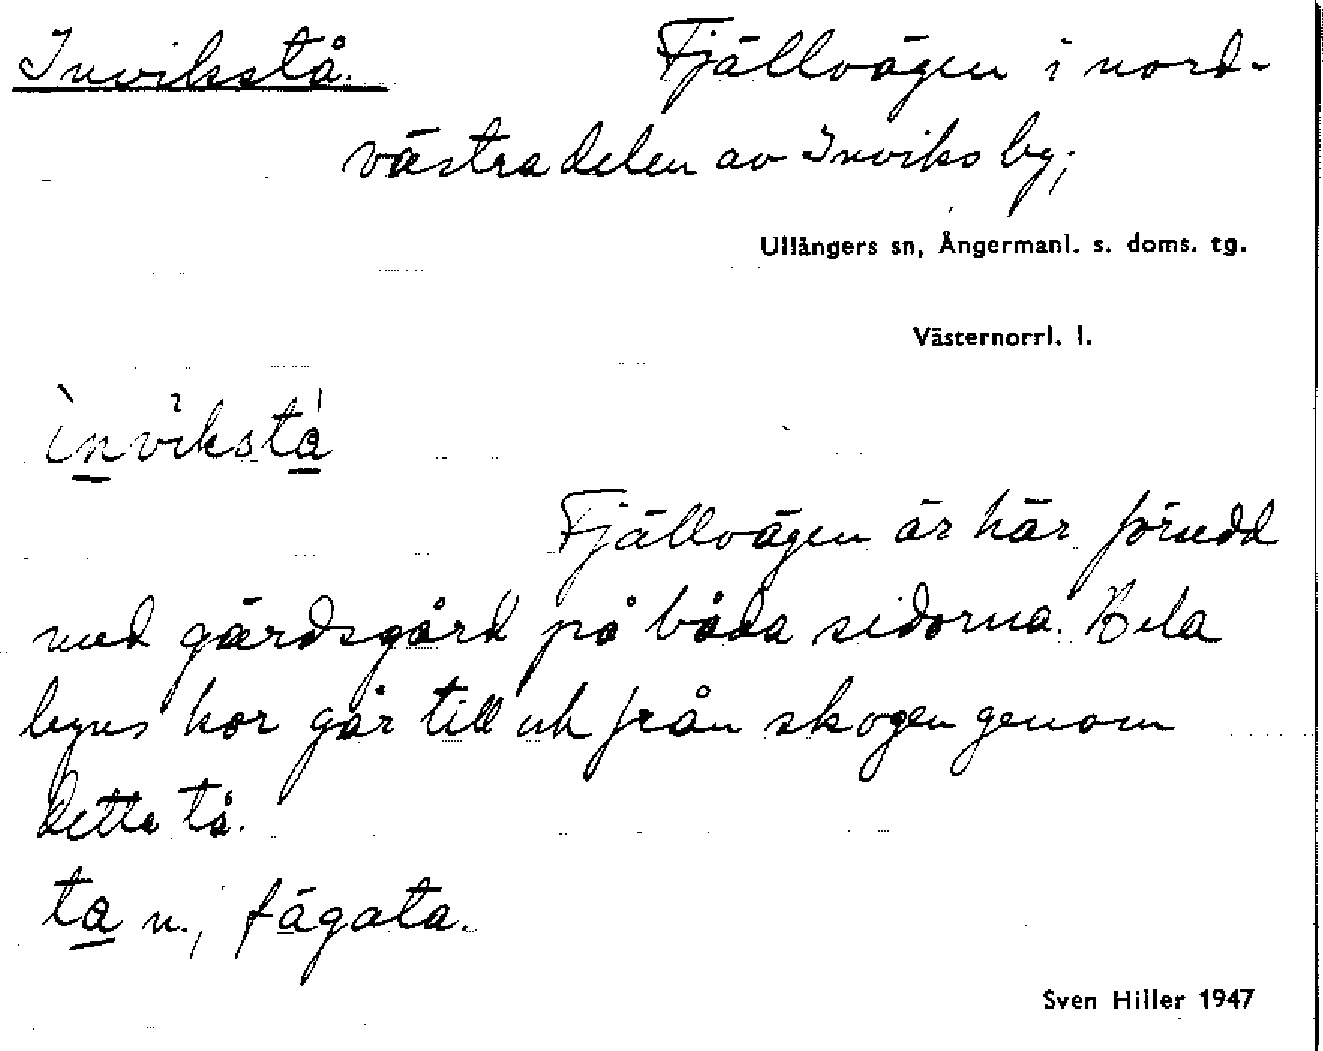 Invikstå. Fjällvägen i nord-
västra delen av Inviks by;
Ullångers sn, Ångermanl. s. doms. tg.
Västernorrl. l.
ìnvikstá
Fjällvägen är här försedd
med gärdsgård på båda sidorna. Hela
byns kor går till och från skogen genom
detta tå.
ta n., fägata.
Sven Hiller 1947